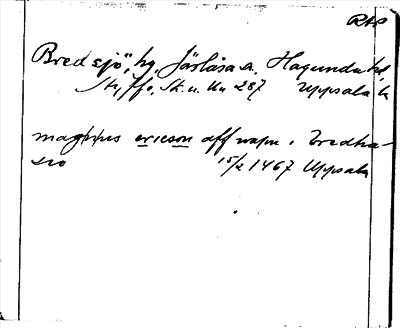 RAP
Bredsjö, hg, Järlåsa s. Hagunda hd,
Styffe, Sk. u. Un 287 Uppsala l.
magnus ericson aff wapn i bredha-
sio 15/2 1467 Uppsala